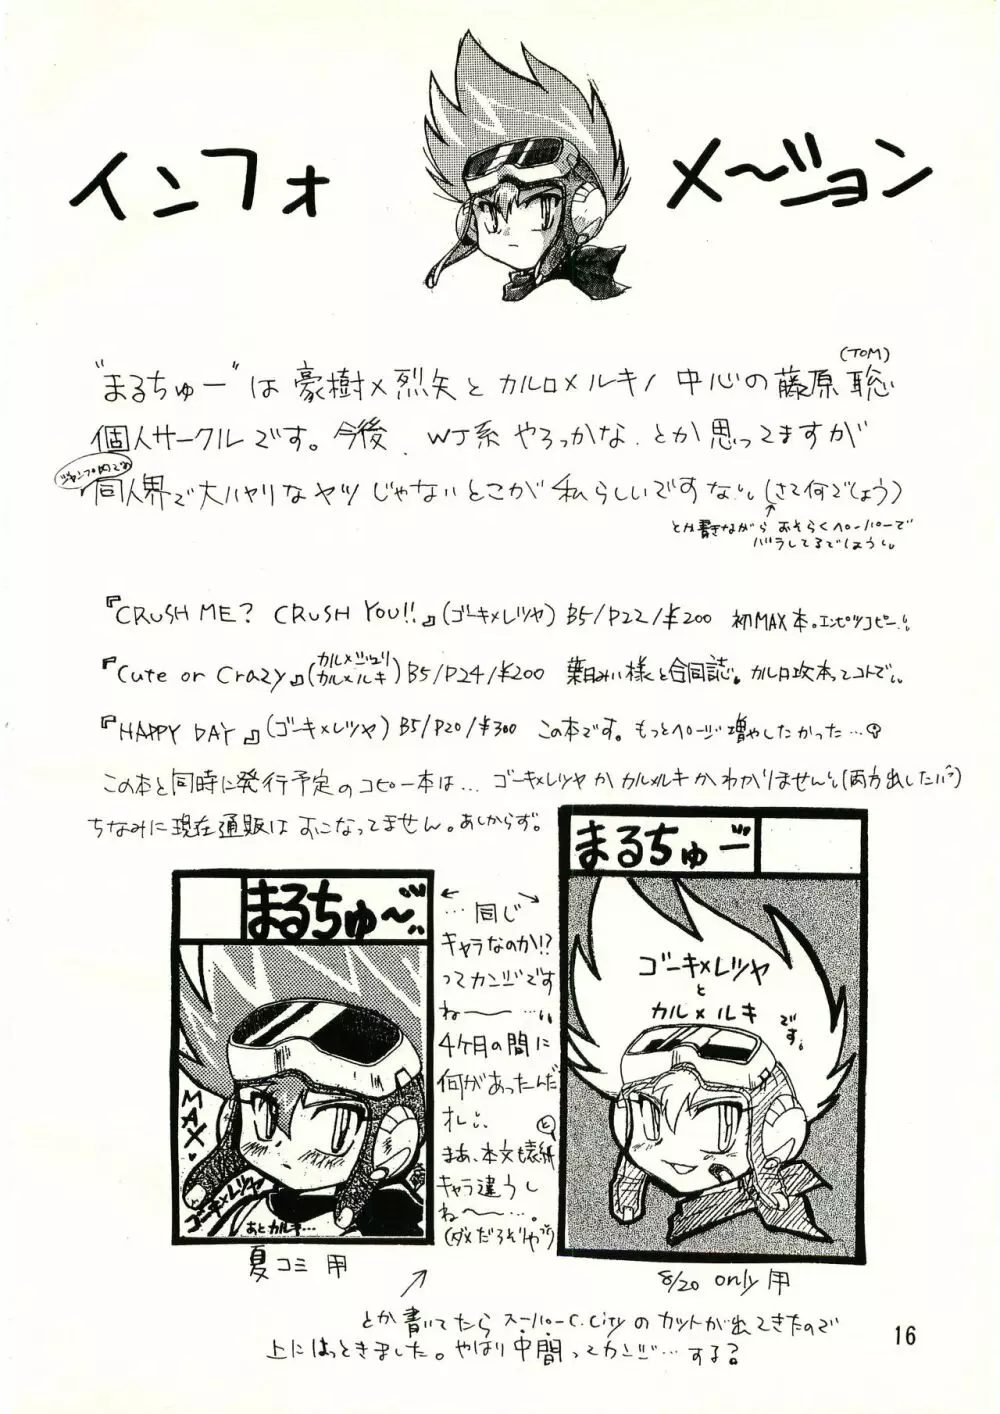 インフォメ～ション
(TOM)
"まるちゅー"は 豪樹×烈矢と カルロ×ルキノ 中心の 藤原 聡
個人サークルです。今後、WJ系 やろっかな、とか思ってますが
ジャンプ的でも
同人界で大ハヤリなヤツじゃないとこが 私らしいですな…(さて何でしょう)
とか書きながら おそらくペーパーで
バラしてるでしょう…。
『CRUSH ME? CRUSH YOU!!』(ゴーキ×レツヤ) B5/P22/¥200 初MAX本。エンピツコピー…!
『Cute or Crazy』(カル×ジュリ カル×ルキ) B5/P24/¥200 葉月みい様と合同誌。カルロ攻本ってコトで…
『HAPPY DAY』(ゴーキ×レツヤ) B5/P20/¥300 この本です。もっとページ増やしたかった…
この本と同時に発行予定のコピー本は… ゴーキ×レツヤか カル×ルキか わかりません…(両方出したい…)
ちなみに現在通販は おこなってません。あしからず。
まるちゅ～…
MAX
ゴーキ×レツヤ
と
あとカルキ…
夏コミ用
…同じ
キャラなのか!?
ってカンジです
ね～～…
4ヶ月の間に
何があったんだ
オレ…
まあ、本文も表紙と
キャラ違うし
ね～～…。
(ダメだろぞりゃ")
まるちゅー
ゴーキ×レツヤ
と
カル×ルキ
です。
8/20 only用
とか書いてたら スーパーC.Cityの カットが出てきたので
上にはっときました。やはり中間ってカンジ… する?
16